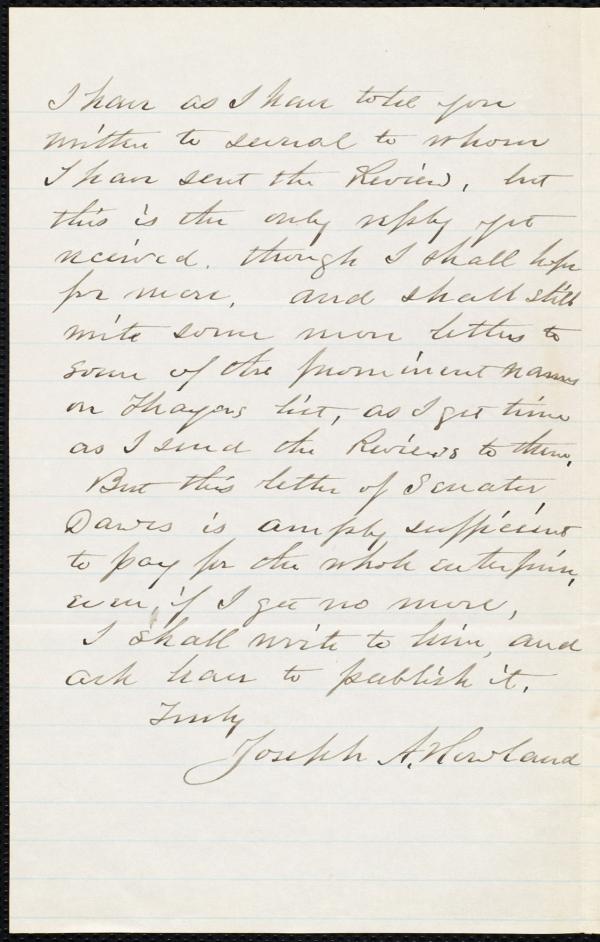 I have as I have told you
written to several to whom
I have sent the Review, but
this is the only reply yet
received. though I shall hope
for more, and shall still
write some more letters to
some of the prominent names
on Thayers list, as I get time
as I send the Reviews to them.
But this letter of Senator
Dawes is amply sufficient
to pay for the whole enterprise,
even, if I get no more,
I shall write to him, and
ask leave to publish it.
Truly
Joseph A. Howland